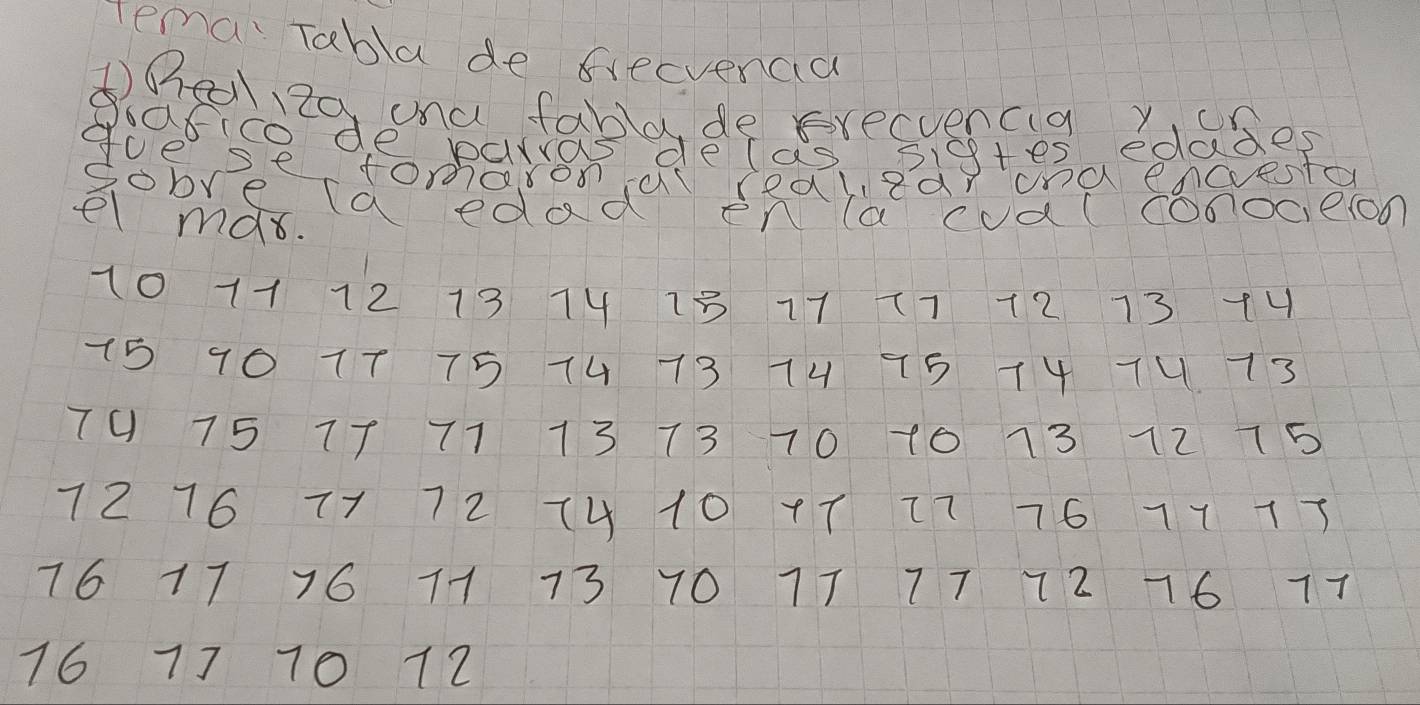 Tema: Tabla de frecuencia
1) Realiza una tabla de frecuencia y un
grafico de barras de las sigtes edades
que se tomaron al realizar una encuesta
sobre la edad en la cual conocieron
el mar.
10 11 12 13 14 15 11 11 12 13 14
15 10 11 15 14 13 14 15 14 14 13
14 15 11 11 13 13 10 10 13 12 15
12 16 11 12 14 10 11 11 16 11 11
16 11 16 11 13 10 11 11 12 16 11
16 11 10 12